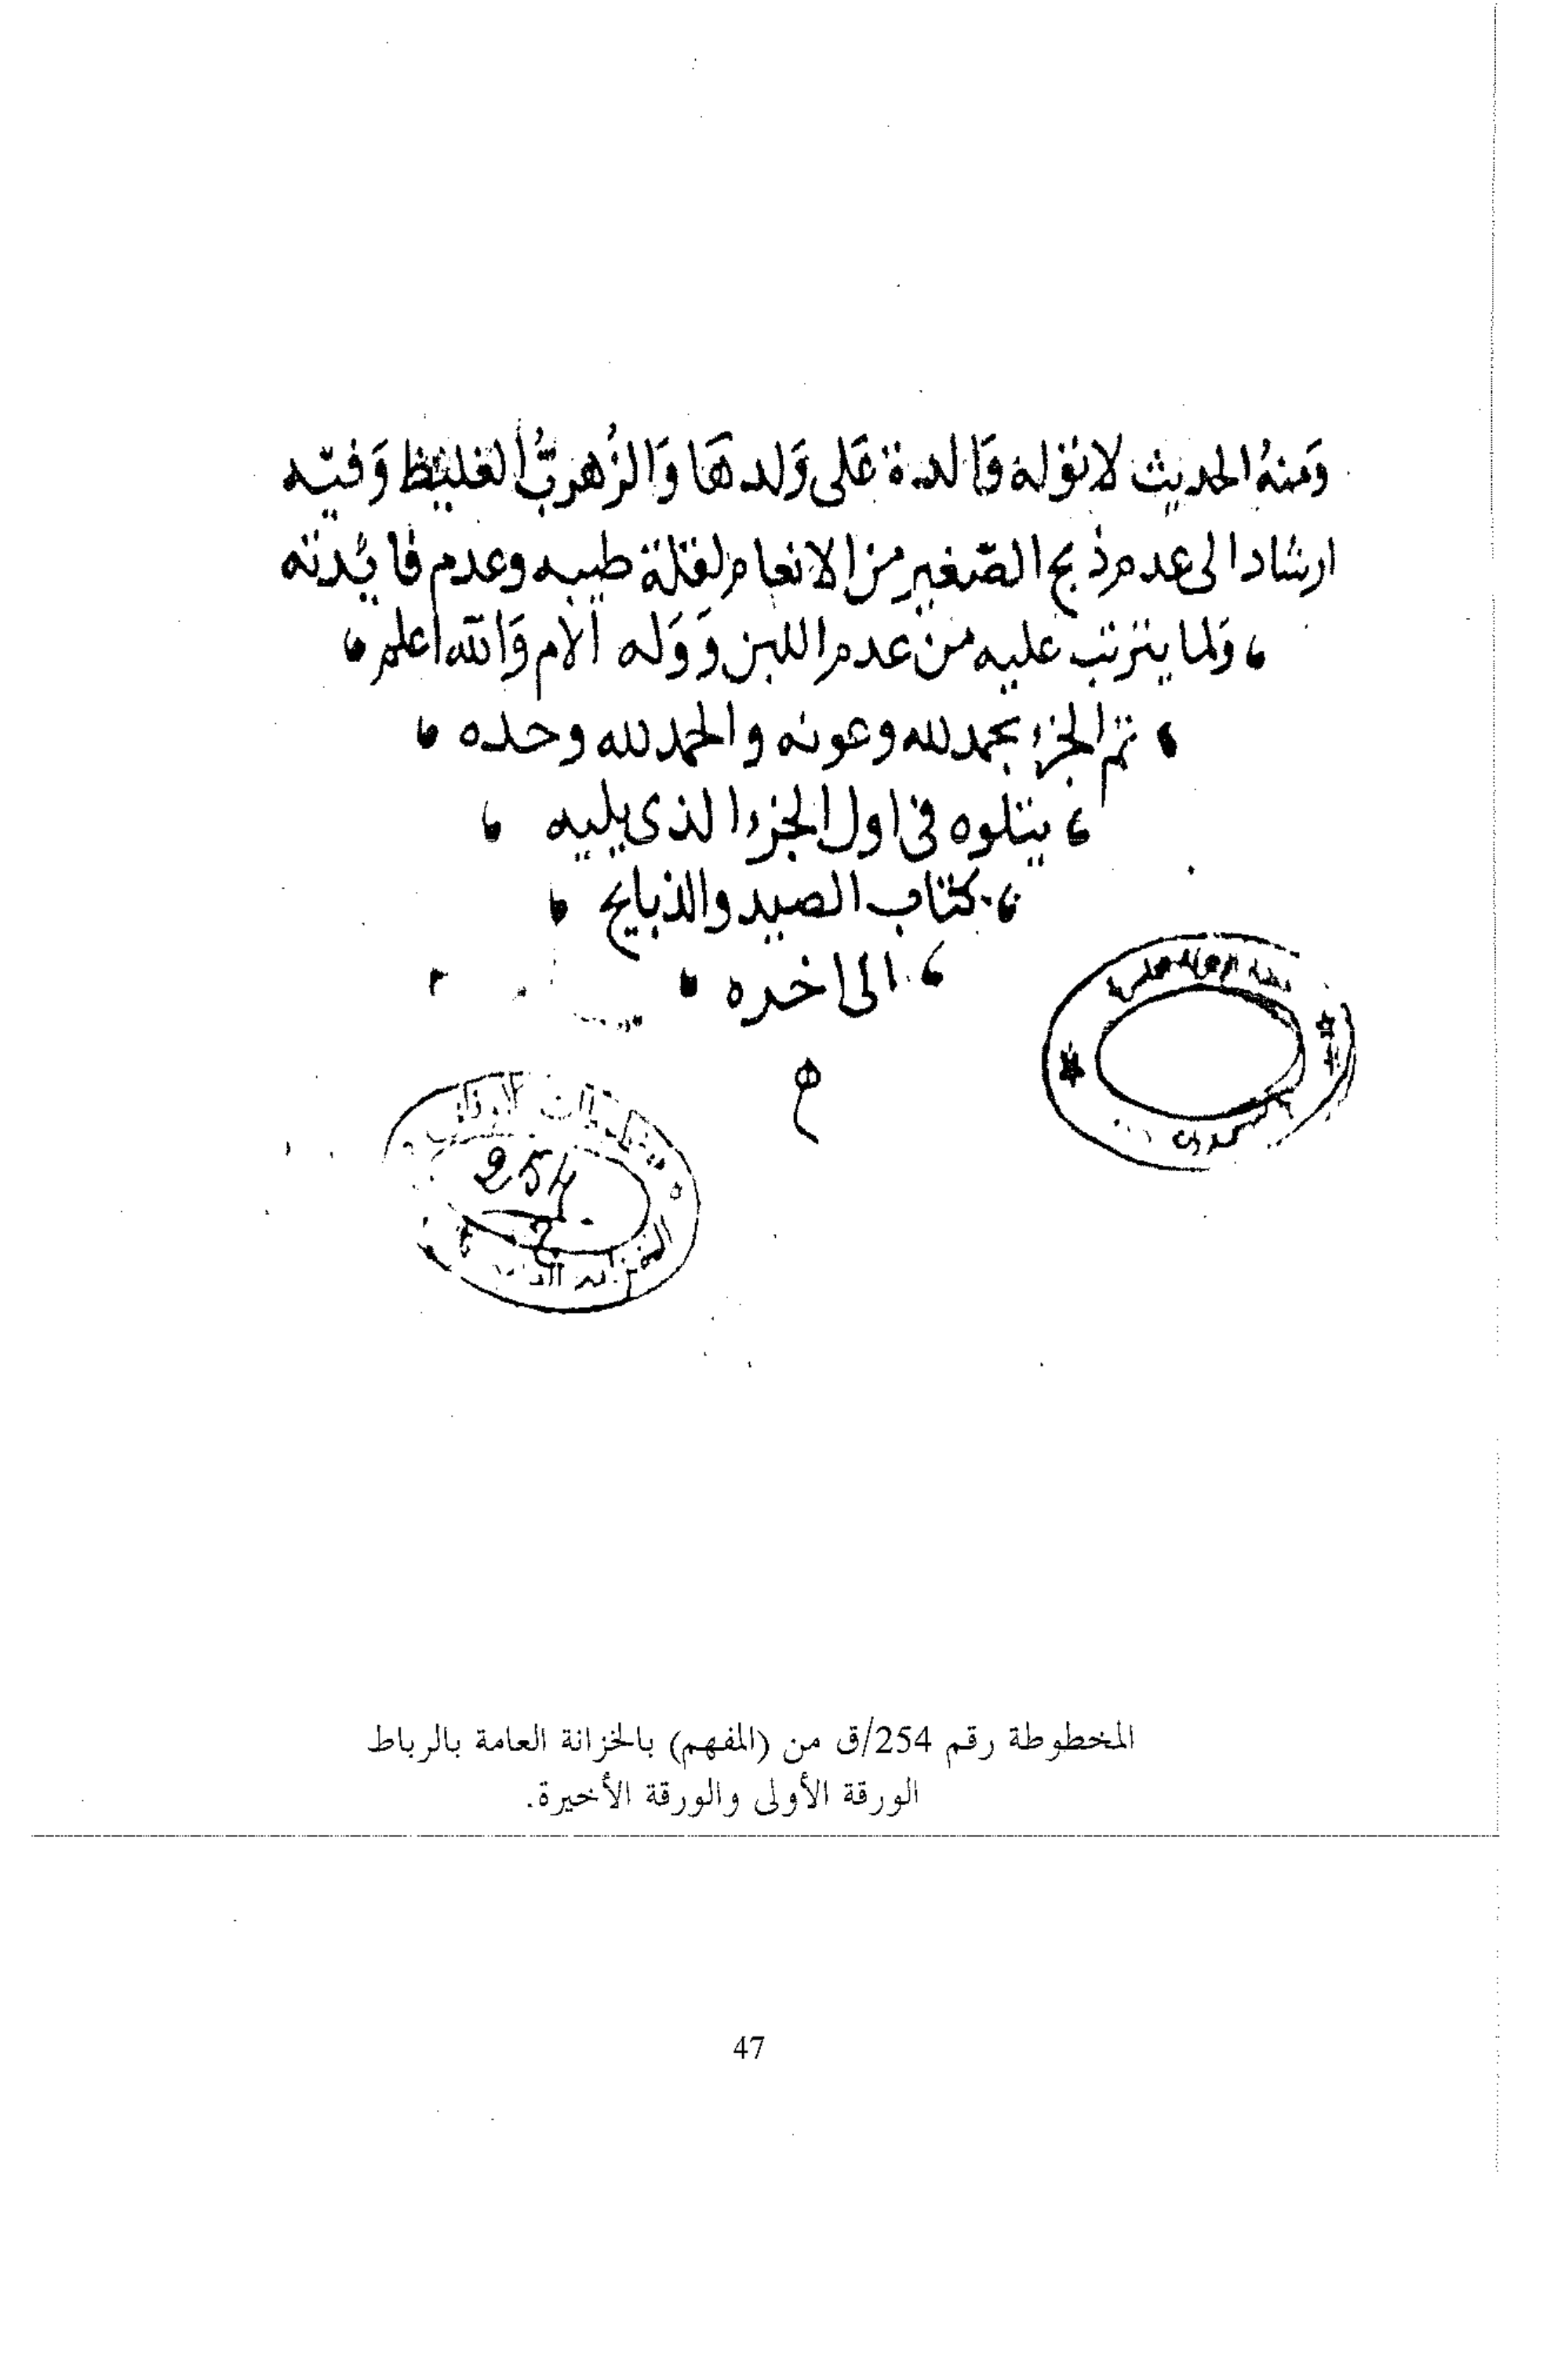 وَمنهُ الحديث لا توَله وَالدة عَلى وَلدهَا وَالزُهربُّ الغليظ وَفيه
ارشادا لى عدم ذبح الصّغير من الانعام لقلة طيبه وعدم فائدته
ولما يترتب عليه من عدم اللبن وَوَله الام وَالله اعلم
تم الجزء بحمد لله وعونه والحمد لله وحده
يتلوه فى اول الجزء الذى يليه
كتاب الصيد والذبايح
الى اخره
254
المخطوطة رقم 254/ق من (المفهم) بالخزانة العامة بالرباط
الورقة الأولى والورقة الأخيرة.
47